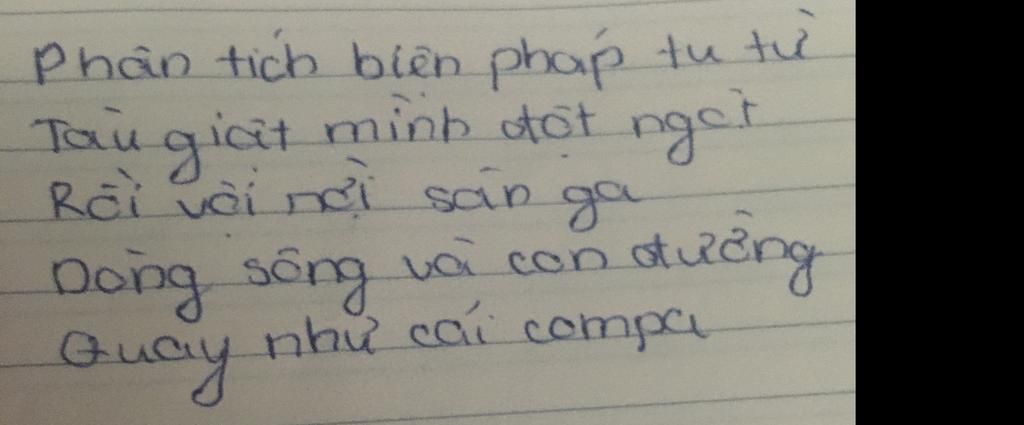 Phân tích biện pháp tu từ
Tàu giật mình đột ngột
Rồi vội rời sân ga
Dòng sông và con đường
Quay như cái compa